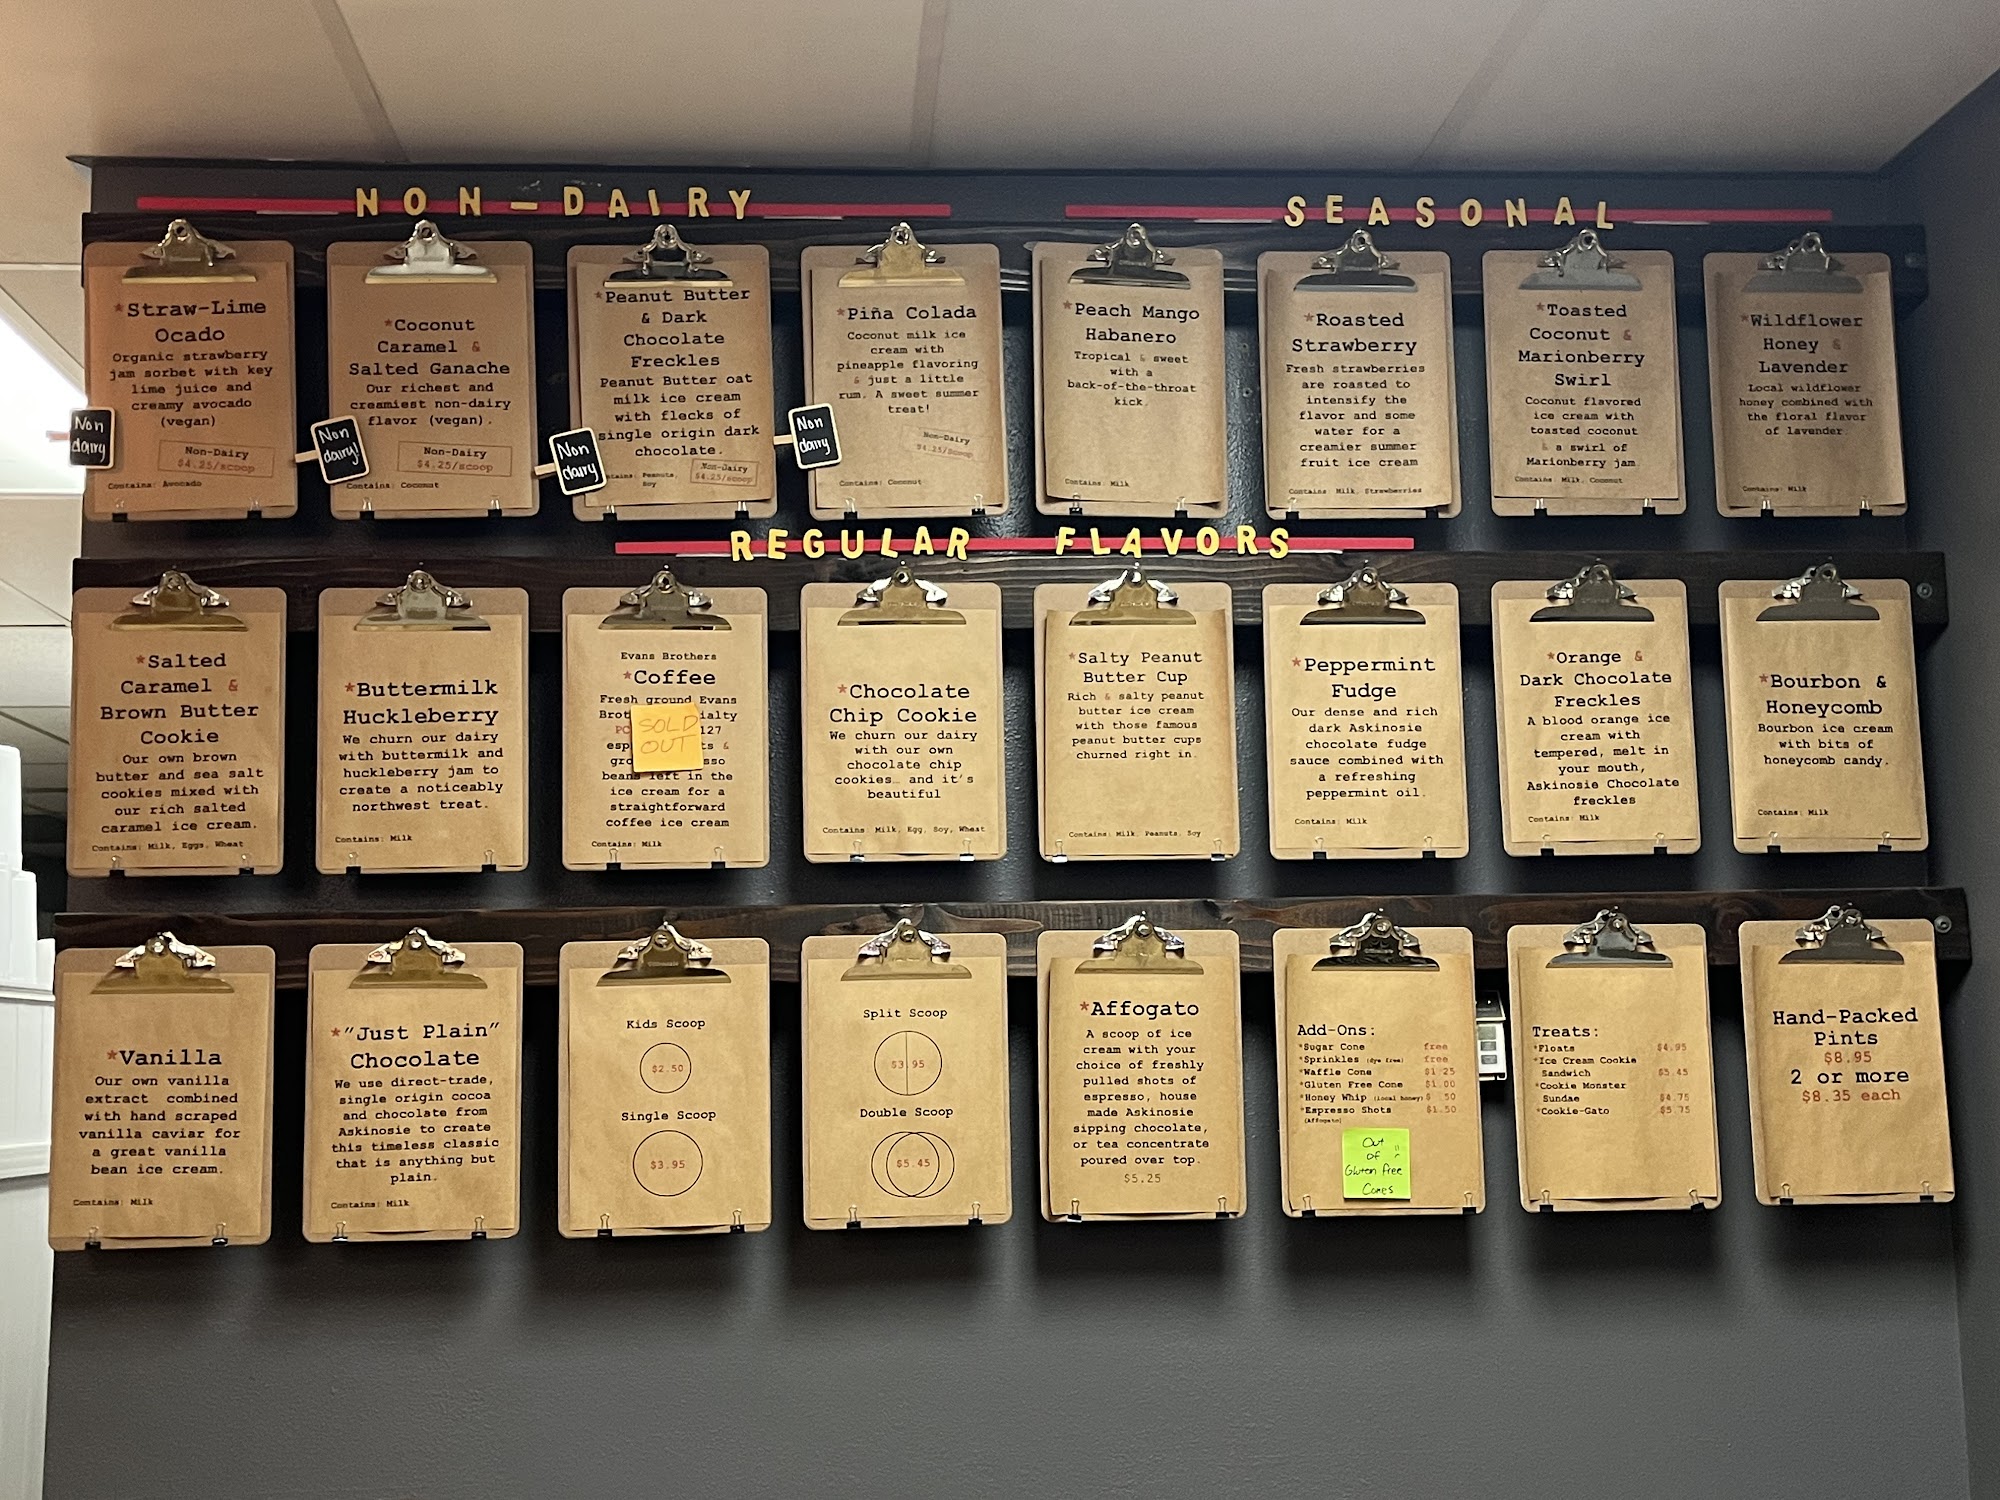 NON-DAIRY
SEASONAL
*Straw-Lime
Ocado
Organic strawberry
jam sorbet with key
lime juice and
creamy avocado
(vegan)
Non-Dairy
$4.25/scoop
Contains: Avocado
Non
dairy
*Coconut
Caramel &
Salted Ganache
Our richest and
creamiest non-dairy
flavor (vegan).
Non-Dairy
$4.25/scoop
Contains: Coconut
Non
dairy!
*Peanut Butter
& Dark
Chocolate
Freckles
Peanut Butter oat
milk ice cream
with flecks of
single origin dark
chocolate.
Non-Dairy
$4.25/scoop
Peanuts,
Soy
Non
dairy
*Piña Colada
Coconut milk ice
cream with
pineapple flavoring
& just a little
rum. A sweet summer
treat!
Non-Dairy
$4.25/scoop
Contains: Coconut
Non
dairy
*Peach Mango
Habanero
Tropical & sweet
with a
back-of-the-throat
kick.
Contains: Milk
*Roasted
Strawberry
Fresh strawberries
are roasted to
intensify the
flavor and some
water for a
creamier summer
fruit ice cream
Contains: Milk, Strawberries
*Toasted
Coconut &
Marionberry
Swirl
Coconut flavored
ice cream with
toasted coconut
& a swirl of
Marionberry jam
Contains: Milk, Coconut
*Wildflower
Honey &
Lavender
Local wildflower
honey combined with
the floral flavor
of lavender.
Contains: Milk
REGULAR FLAVORS
*Salted
Caramel &
Brown Butter
Cookie
Our own brown
butter and sea salt
cookies mixed with
our rich salted
caramel ice cream.
Contains: Milk, Eggs, Wheat
*Buttermilk
Huckleberry
We churn our dairy
with buttermilk and
huckleberry jam to
create a noticeably
northwest treat.
Contains: Milk
Evans Brothers
*Coffee
Fresh ground Evans
127
&
beans left in the
ice cream for a
straightforward
coffee ice cream
Contains: Milk
SOLD
OUT
*Chocolate
Chip Cookie
We churn our dairy
with our own
chocolate chip
cookies… and it's
beautiful
Contains: Milk, Egg, Soy, Wheat
*Salty Peanut
Butter Cup
Rich & salty peanut
butter ice cream
with those famous
peanut butter cups
churned right in.
Contains: Milk, Peanuts, Soy
*Peppermint
Fudge
Our dense and rich
dark Askinosie
chocolate fudge
sauce combined with
a refreshing
peppermint oil.
Contains: Milk
*Orange &
Dark Chocolate
Freckles
A blood orange ice
cream with
tempered, melt in
your mouth,
Askinosie Chocolate
freckles
Contains: Milk
*Bourbon &
Honeycomb
Bourbon ice cream
with bits of
honeycomb candy.
Contains: Milk
*Vanilla
Our own vanilla
extract combined
with hand scraped
vanilla caviar for
a great vanilla
bean ice cream.
Contains: Milk
*"Just Plain"
Chocolate
We use direct-trade,
single origin cocoa
and chocolate from
Askinosie to create
this timeless classic
that is anything but
plain.
Contains: Milk
Kids Scoop
$2.50
Single Scoop
$3.95
Split Scoop
$3.95
Double Scoop
$5.45
*Affogato
A scoop of ice
cream with your
choice of freshly
pulled shots of
espresso, house
made Askinosie
sipping chocolate,
or tea concentrate
poured over top.
$5.25
Add-Ons:
*Sugar Cone free
*Sprinkles (dye free) free
*Waffle Cone $1.25
*Gluten Free Cone $1.00
*Honey Whip (local honey) $ .50
*Espresso Shots $1.50
(Affogato)
Out
of
Gluten free
Cones
Treats:
*Floats $4.95
*Ice Cream Cookie
Sandwich $5.45
*Cookie Monster
Sundae $4.75
*Cookie-Gato $5.75
Hand-Packed
Pints
$8.95
2 or more
$8.35 each